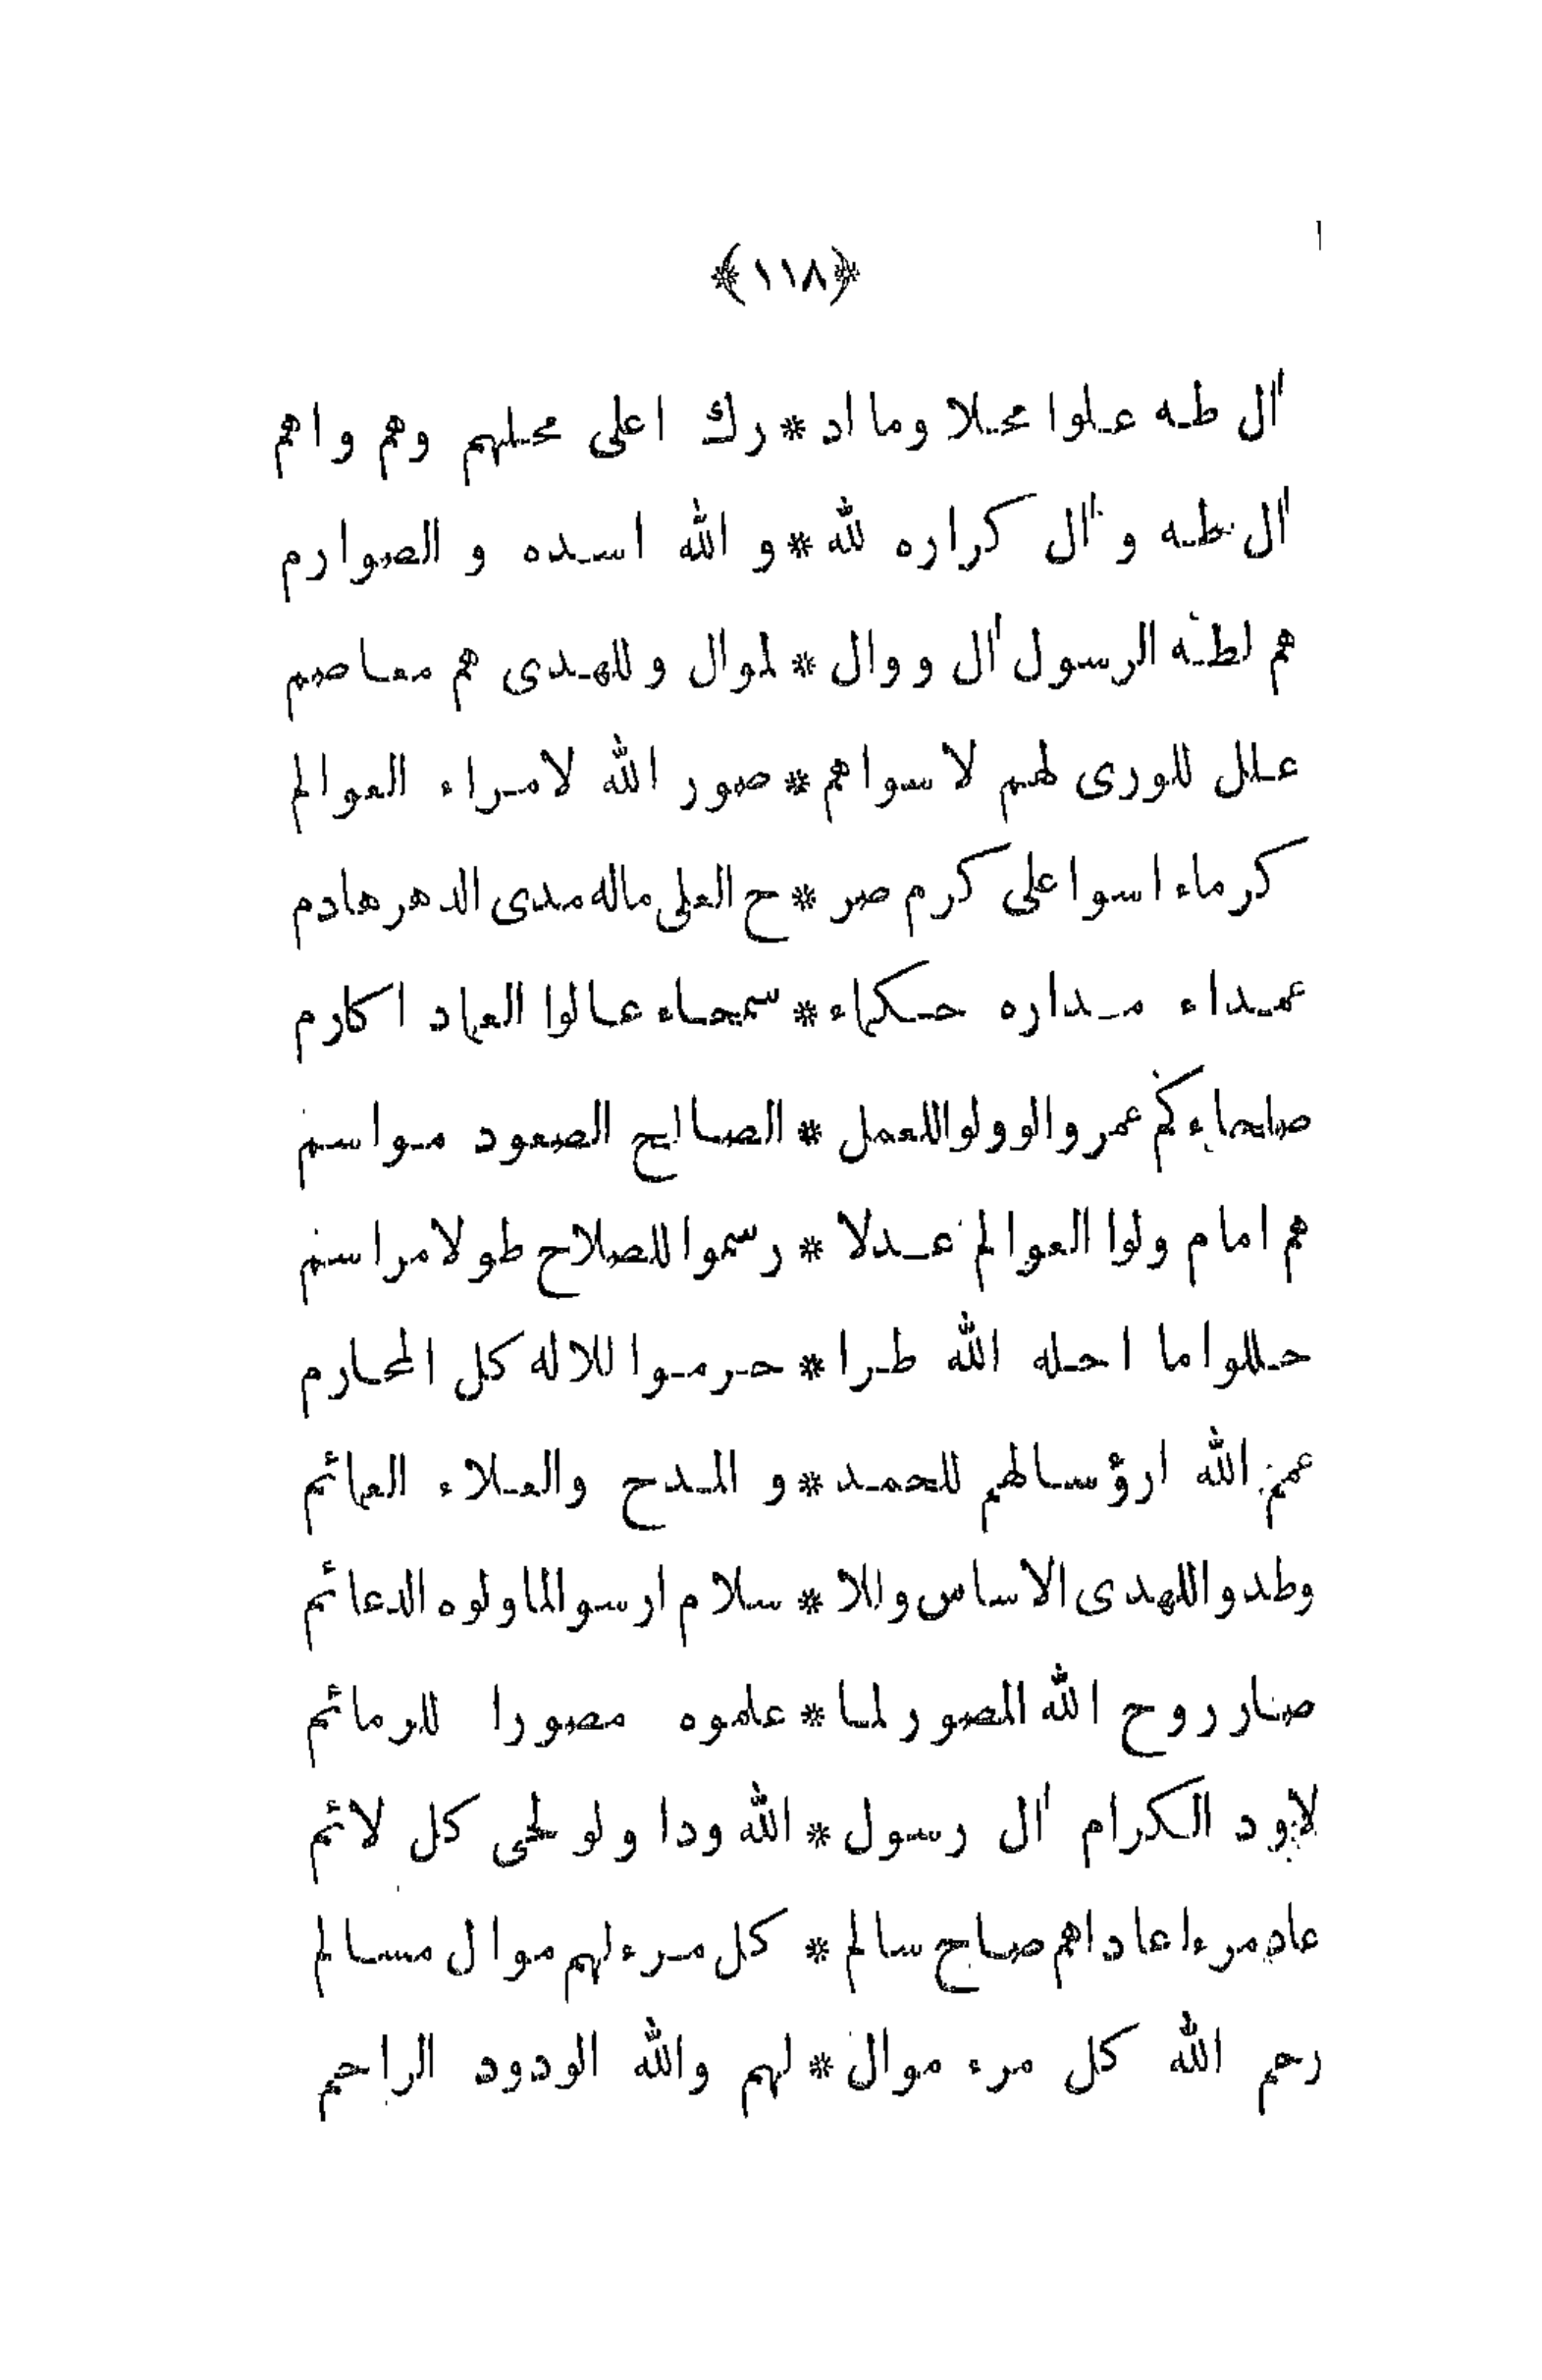 ﴿١١٨﴾
اٰل طه علوا محلا وما اد * رك اعلى محلهم وهم واهم
اٰل طه و اٰل كراره لله * و الله اسده و الصوارم
هم لطه الرسول اٰل ووال * لموال وللهدى هم معاصم
علل للورى لهم لا سواهم * صور الله لامراء العوالم
كرماء اسوا على كرم صر * ح العلى ماله مدى الدهر هادم
عمداء مداره حكماء * سمحاء عالوا العماد اكارم
صلحاء كم عمروا لوولوا للعمل * الصالح الصعود مواسم
هم امام ولوا العوالم عدلا * رسموا للصلاح طولا مراسم
حللوا ما احله الله طرا * حرموا للاله كل المحارم
عمم الله ارؤسا لهم للحمد * و المدح والعلاء العمائم
وطدوا للهدى الاساس وللا * سلام ارسوا لما ولوه الدعائم
صار روح الله المصور لما * علموه مصورا للرمائم
لاود الكرام اٰل رسول * الله ودا ولو لحى كل لائم
عاد مرءا عاداهم صاح سالم * كل مرء لهم موال مسالم
رحم الله كل مرء موال * لهم والله الودود الراحم